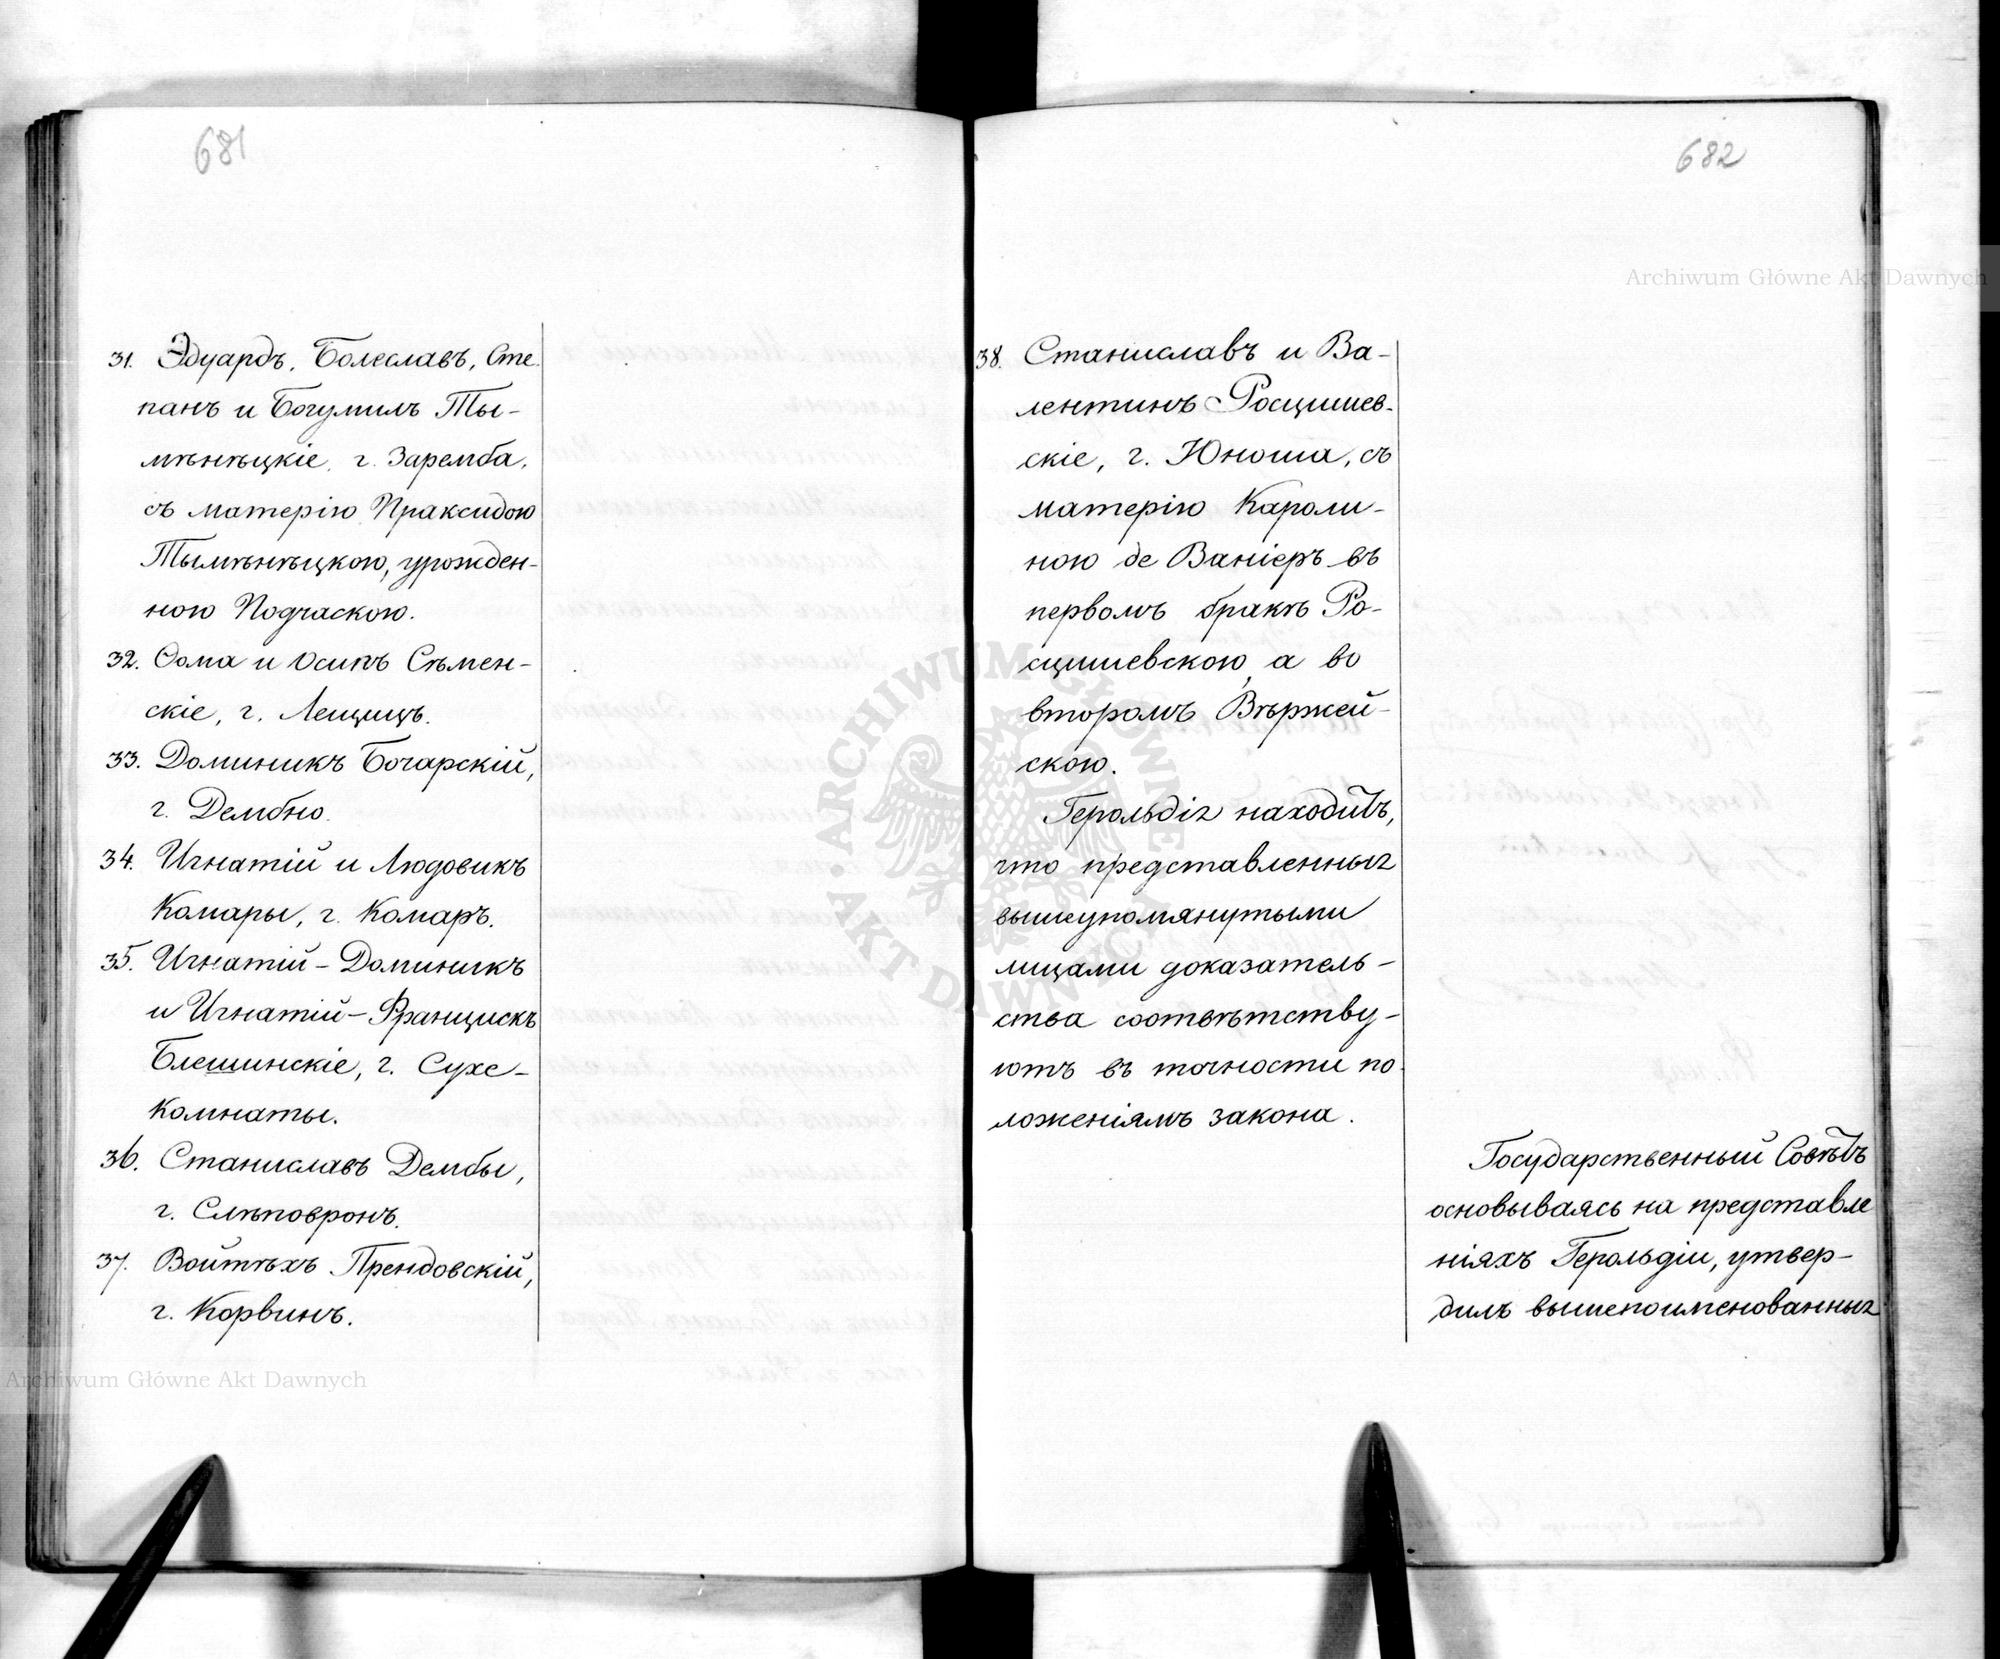 681
31. Эдуардъ, Болеславъ, Сте-
панъ и Богумилъ Ты-
мѣнѣцкіе, г. Заремба,
съ матерію Праксидою
Тымѣнѣцкою, урожден-
ною Подчаскою.
32. Ѳома и Осипъ Сѣмен-
скіе, г. Лещицъ.
33. Доминикъ Бочарскій,
г. Дембно.
34. Игнатій и Людовикъ
Комары, г. Комаръ.
35. Игнатій-Доминикъ
и Игнатій-Францискъ
Блешинскіе, г. Сухе-
комнаты.
36. Станиславъ Дембы,
г. Слѣповронъ.
37. Войтѣхъ Прендовскій,
г. Корвинъ.
Archiwum Główne Akt Dawnych
682
Archiwum Główne Akt Dawnych
38. Станиславъ и Ва-
лентинъ Росцишев-
скіе, г. Юноша, съ
матерію Кароли-
ною де Ваніеръ въ
первомъ бракѣ Ро-
сцишевскою, а во
второмъ Вѣржей-
скою.
Герольдія находитъ,
что представленныя
вышеупомянутыми
лицами доказатель-
ства соотвѣтству-
ютъ въ точности по-
ложеніямъ закона.
Государственный Совѣтъ
основываясь на представле
ніяхъ Герольдіи, утвер-
дилъ вышепоименованныя
ARCHIWUM GŁÓWNE AKT DAWNYCH